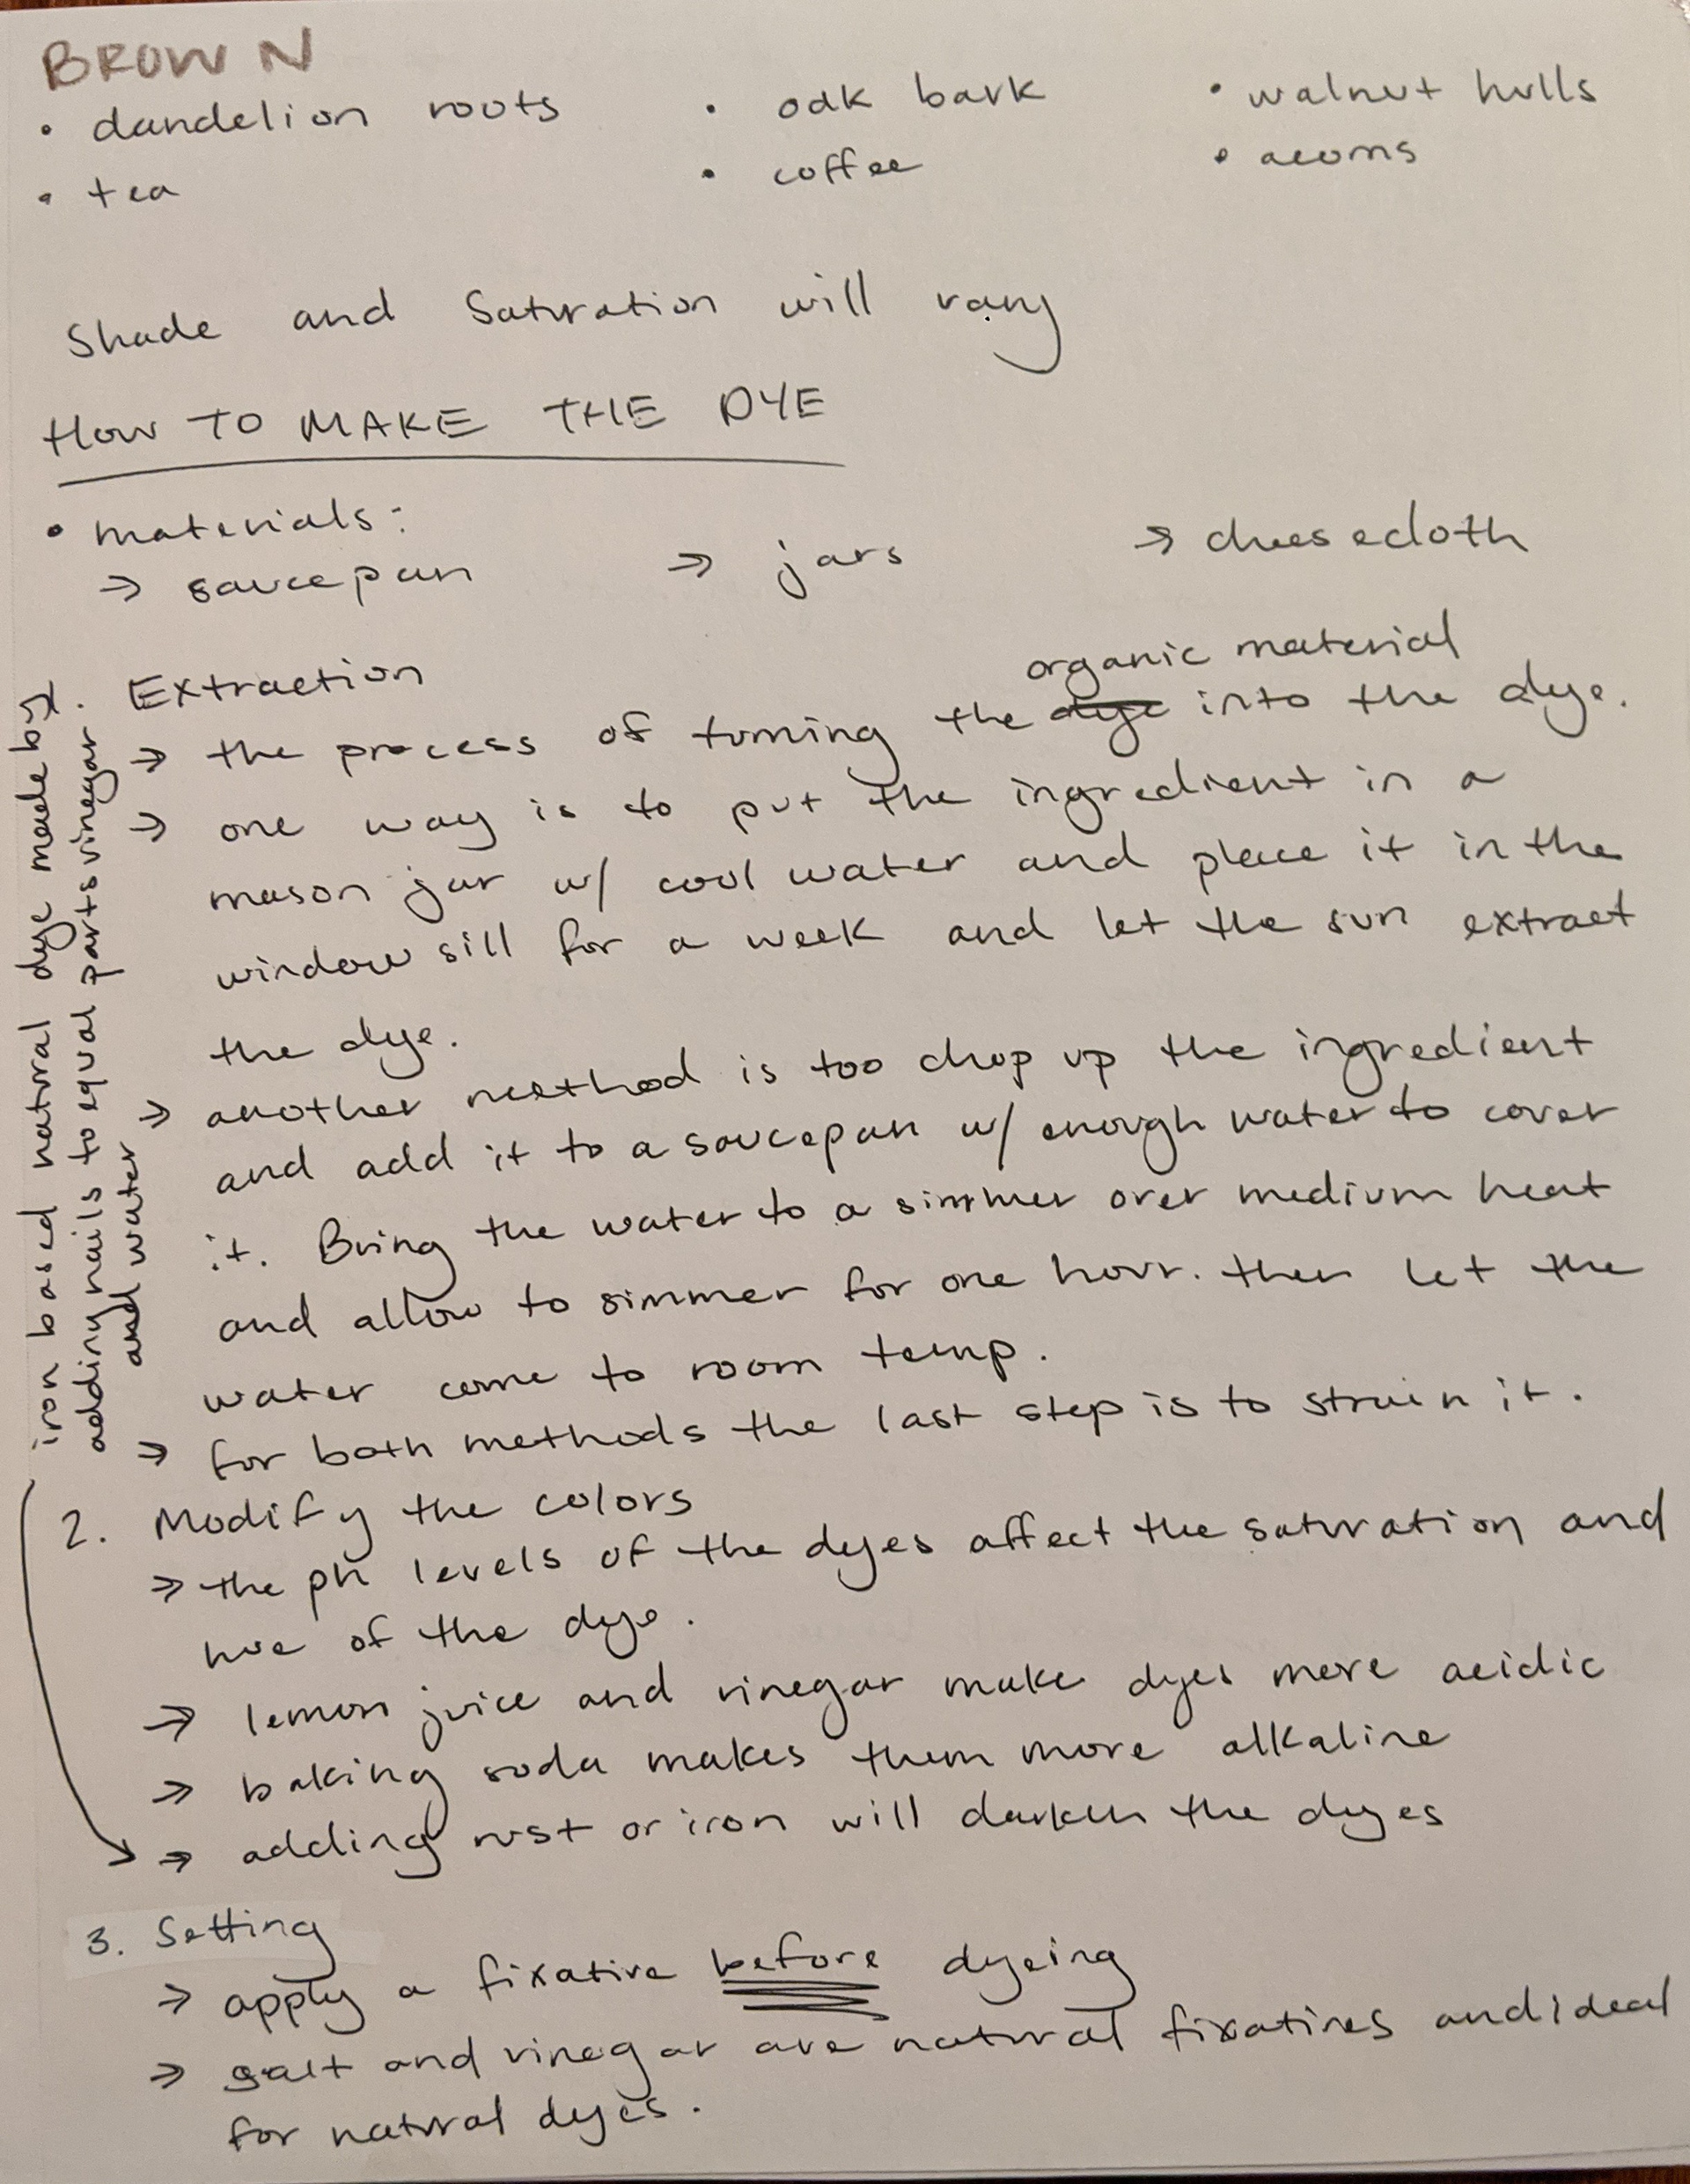 BROWN
• dandelion roots • oak bark • walnut hulls
• tea • coffee • acorns
Shade and Saturation will vary
HOW TO MAKE THE DYE
• materials:
→ saucepan → jars → cheesecloth
1. Extraction
organic material
→ the process of turning the dye into the dye.
→ one way is to put the ingredient in a
mason jar w/ cool water and place it in the
window sill for a week and let the sun extract
the dye.
→ another method is too chop up the ingredient
and add it to a saucepan w/ enough water to cover
it. Bring the water to a simmer over medium heat
and allow to simmer for one hour. then let the
water come to room temp.
→ for both methods the last step is to strain it.
2. Modify the colors
→ the ph levels of the dyes affect the saturation and
hue of the dye.
→ lemon juice and vinegar make dyes more acidic
→ baking soda makes them more alkaline
→ adding rust or iron will darken the dyes
3. Setting
→ apply a fixative before dyeing
→ salt and vinegar are natural fixatives and ideal
for natural dyes.
iron based natural dye made by
adding nails to equal parts vinegar
and water